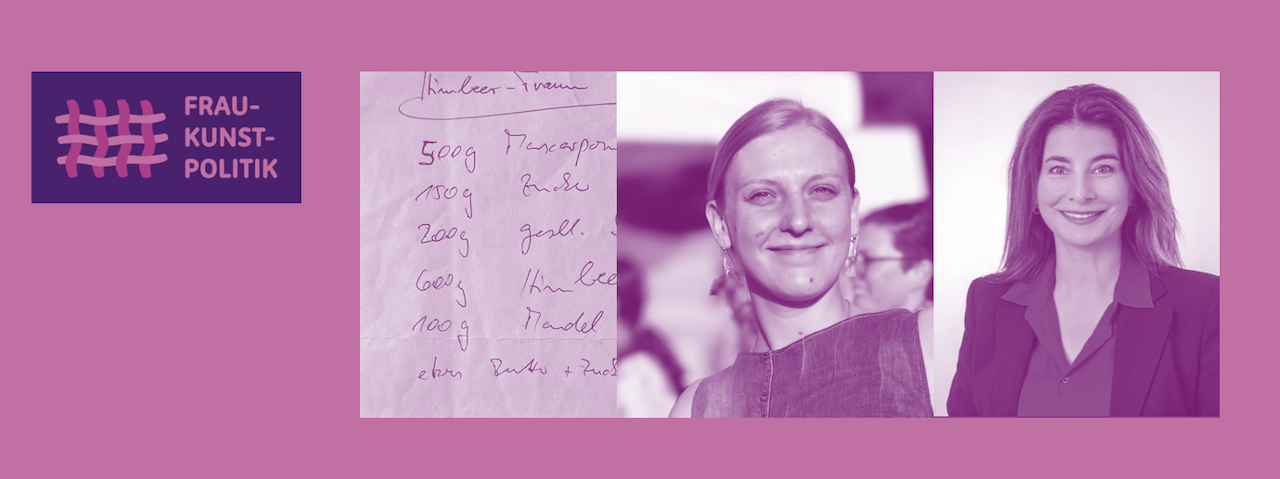 FRAU-
KUNST-
POLITIK
Himbeer-Traum
500g Mascarpon
150g Zucker
200g geschl. S
600g Himbee
100g Mandel
etwas Butter + Zuck